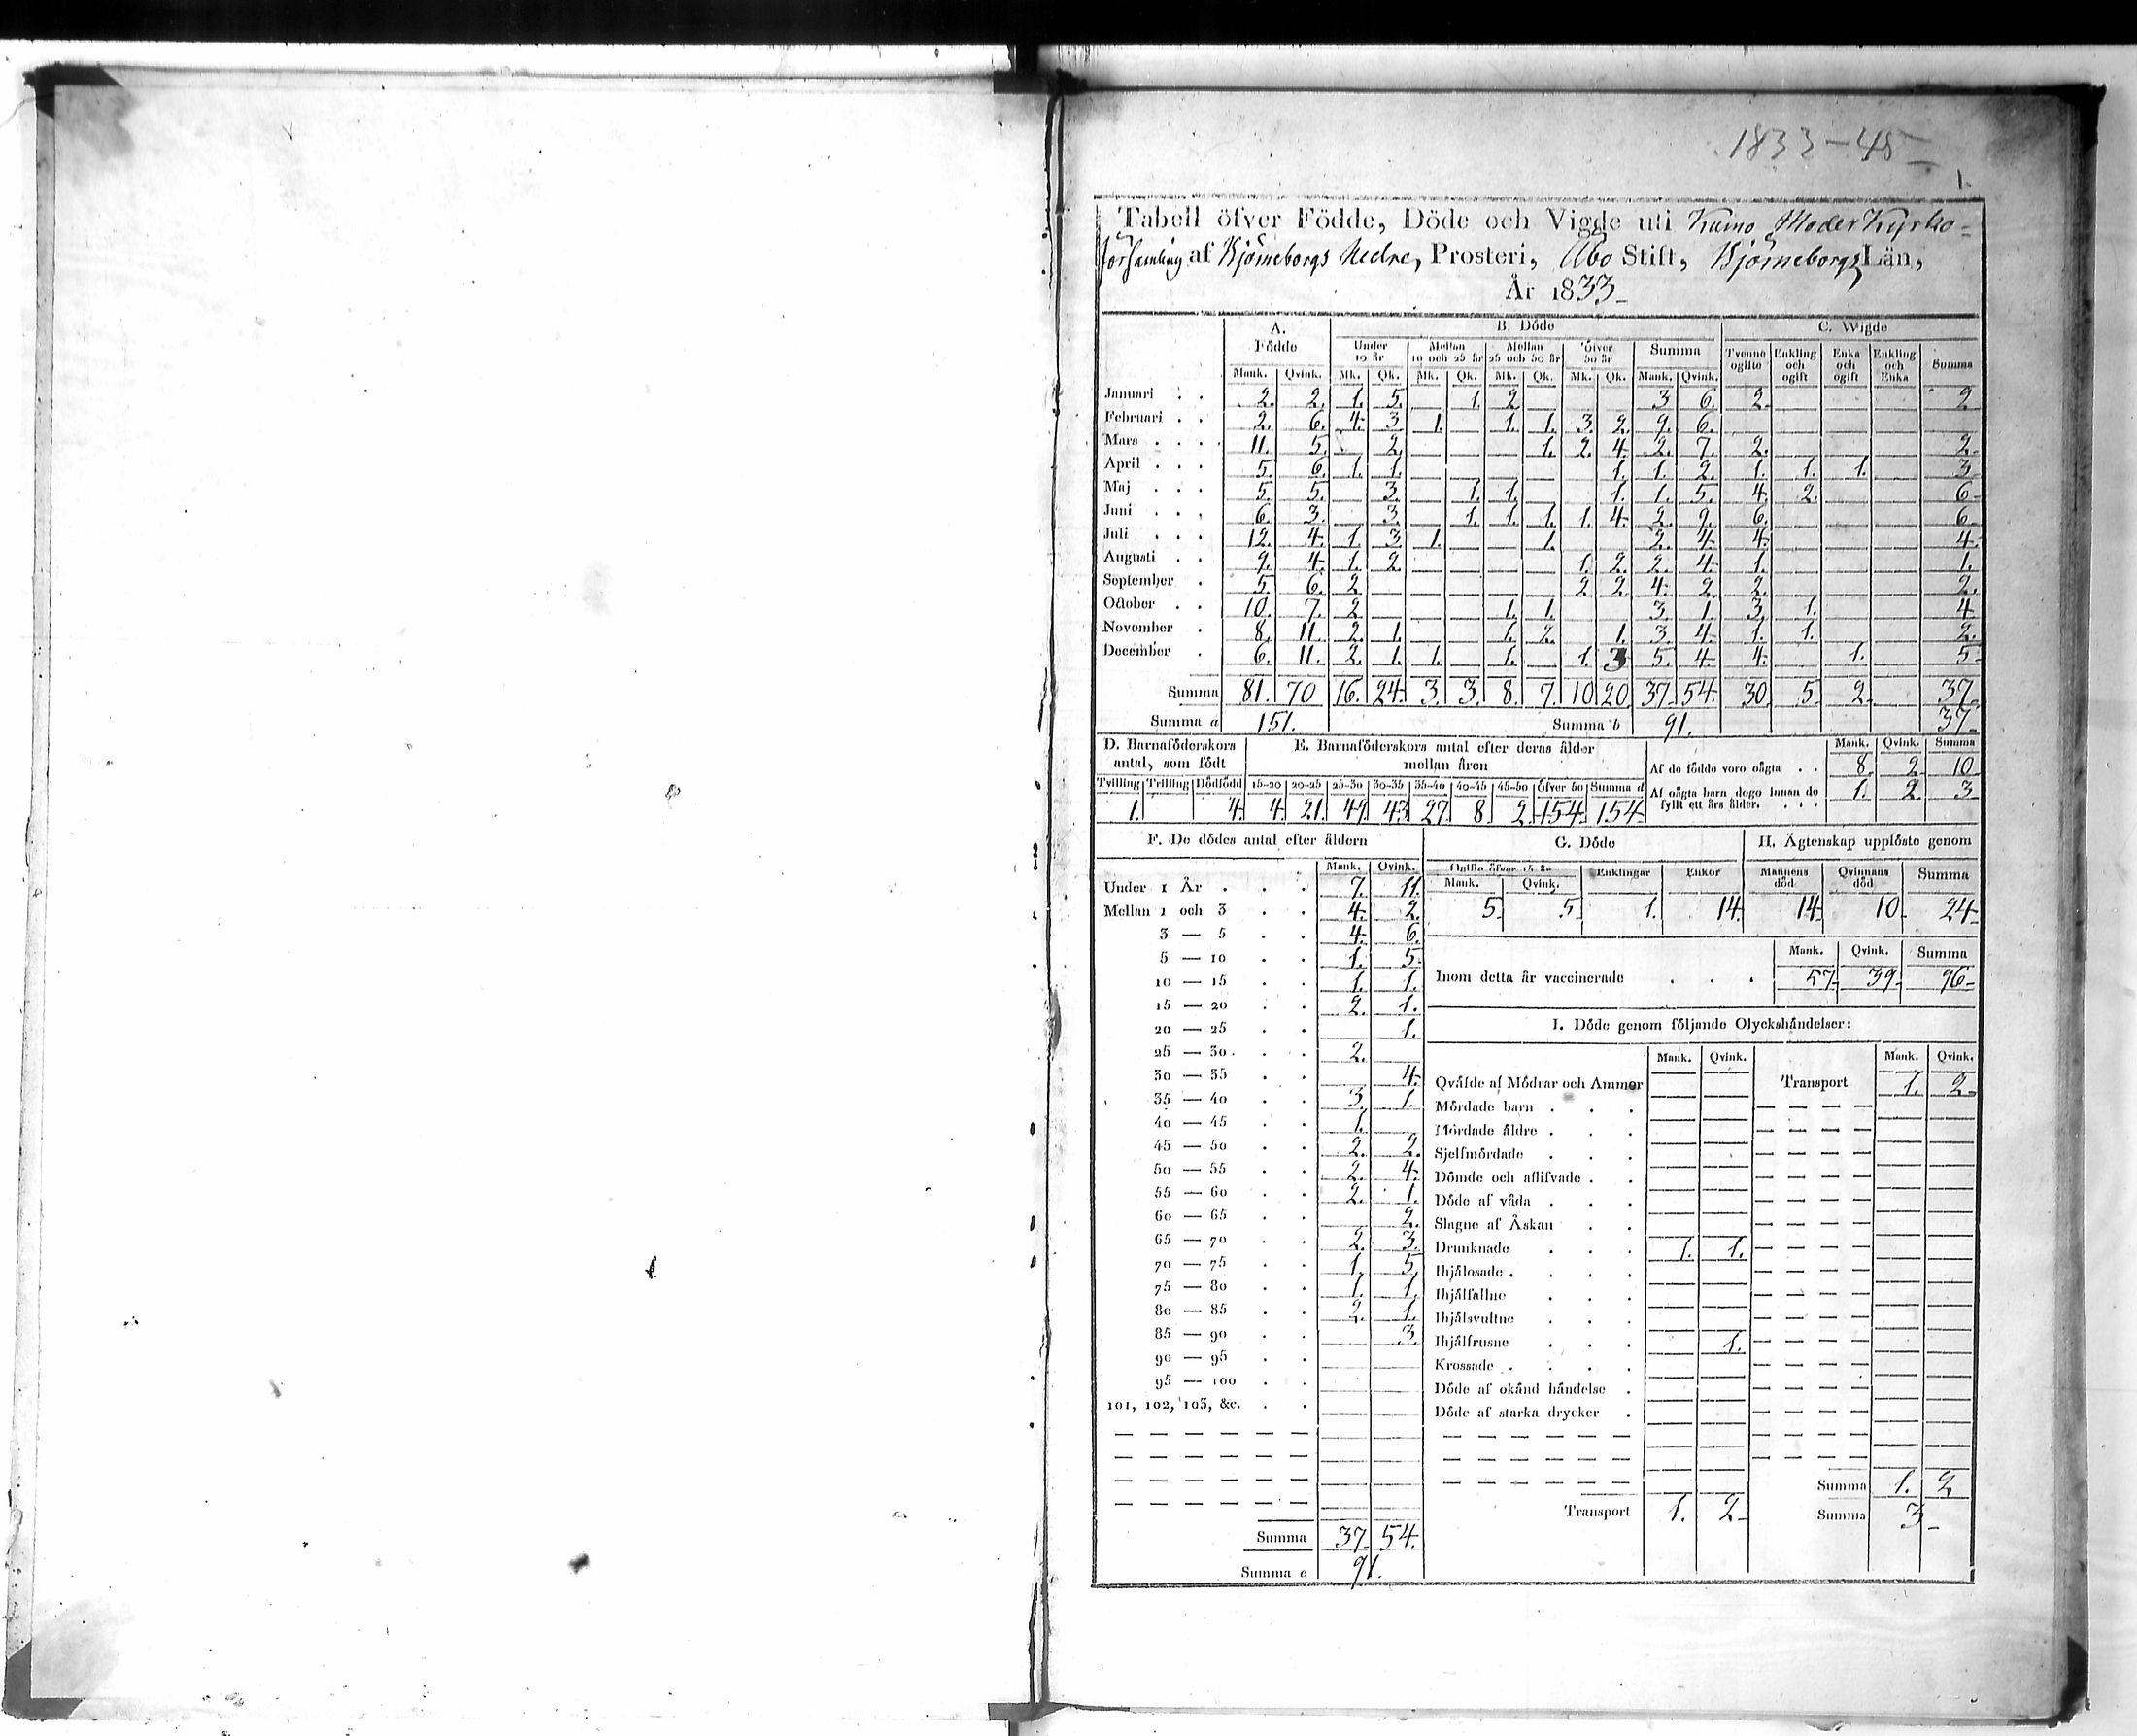 1833-45
1.
Tabell öfver Födde, Döde och Vigde uti Kumo Moder Kyrko-
församling af Björneborgs Nedre, Prosteri, Åbo Stift, Björneborgs Län,
År 1833
A. Födde B. Döde C. Wigde
Under 10 år Mellan 10 och 25 år Mellan 25 och 50 år Öfver 50 år Summa Tvenne ogifte Enkling och ogift Enka och ogift Enkling och Enka Summa
Mank. Qvink. Mk. Qk. Mk. Qk. Mk. Qk. Mk. Qk. Mank. Qvink.
Januari 2. 2. 1. 5. 1. 2 3 6. 2. 2
Februari 2. 6. 4. 3 1. 1. 1. 3. 2. 9. 6.
Mars 11. 5. 2. 1. 2. 4. 2. 7. 2. 2.
April 5. 6. 1. 1. 1. 1. 2. 1. 1. 1. 3
Maj 5. 5. 3. 1. 1. 1. 1. 5. 4. 2. 6
Juni 6. 3. 3. 1. 1. 1. 1. 4. 2. 9. 6. 6
Juli 12. 4. 1. 3 1. 1. 2. 4. 4. 4.
Augusti 9. 4. 1. 2. 1. 2. 2. 4. 1. 1.
September 5. 6. 2 2 2. 4. 2. 2. 2.
October 10. 7. 2 1. 1. 3. 1. 3. 1. 4
November 8. 11. 2. 1. 1. 2. 1. 3. 4. 1. 1. 2.
December 6. 11. 2. 1. 1. 1. 1. 3 5. 4. 4. 1. 5
Summa 81. 70 16. 24. 3. 3. 8. 7. 10 20. 37. 54. 30. 5. 2. 37.
Summa a 151. Summa b 91. 37
D. Barnaföderskors antal, som födt
Tvilling Trilling Dödfödd
1. 4.
E. Barnaföderskors antal efter deras ålder mellan åren
15-20 20-25 25-30 30-35 35-40 40-45 45-50 öfver 50 Summa d
4. 21. 49. 43. 27. 8. 2. 154. 154.
Mank. Qvink. Summa
Af de födde voro oägta 8. 2. 10
Af oägta barn dogo innan de fyllt ett års ålder. 1. 2. 3
F. De dödes antal efter åldern
Mank. Qvink.
Under 1 År 7. 11.
Mellan 1 och 3 4. 2.
3 — 5 4. 6.
5 — 10 1. 5.
10 — 15 1. 1.
15 — 20 2. 1.
20 — 25 1.
25 — 30 2.
30 — 35 4.
35 — 40 3. 1.
40 — 45 1.
45 — 50 2. 2.
50 — 55 2. 4.
55 — 60 2. 1.
60 — 65 2.
65 — 70 2. 3.
70 — 75 1. 5
75 — 80 1. 1.
80 — 85 2. 1.
85 — 90 3.
90 — 95
95 — 100
101, 102, 103, &c.
Summa 37 54.
Summa c 91.
G. Döde
Ogifte öfver 15 år Enklingar Enkor
Mank. Qvink.
5. 5. 1. 14.
H. Ägtenskap upplöste genom
Mannens död Qvinnans död Summa
14. 10. 24
Mank. Qvink. Summa
Inom detta år vaccinerade 57. 39. 96
I. Döde genom följande Olyckshändelser:
Mank. Qvink. Mank. Qvink.
Qväfde af Mödrar och Ammor Transport 1. 2
Mördade barn
Mördade äldre
Sjelfmördade
Dömde och aflifvade
Döde af våda
Slagne af Åskan
Drunknade 1. 1.
Ihjälosade
Ihjälfallne
Ihjälsvultne
Ihjälfrusne 1.
Krossade
Döde af okänd händelse
Döde af starka drycker
Summa 1. 2
Transport 1. 2 Summa 3